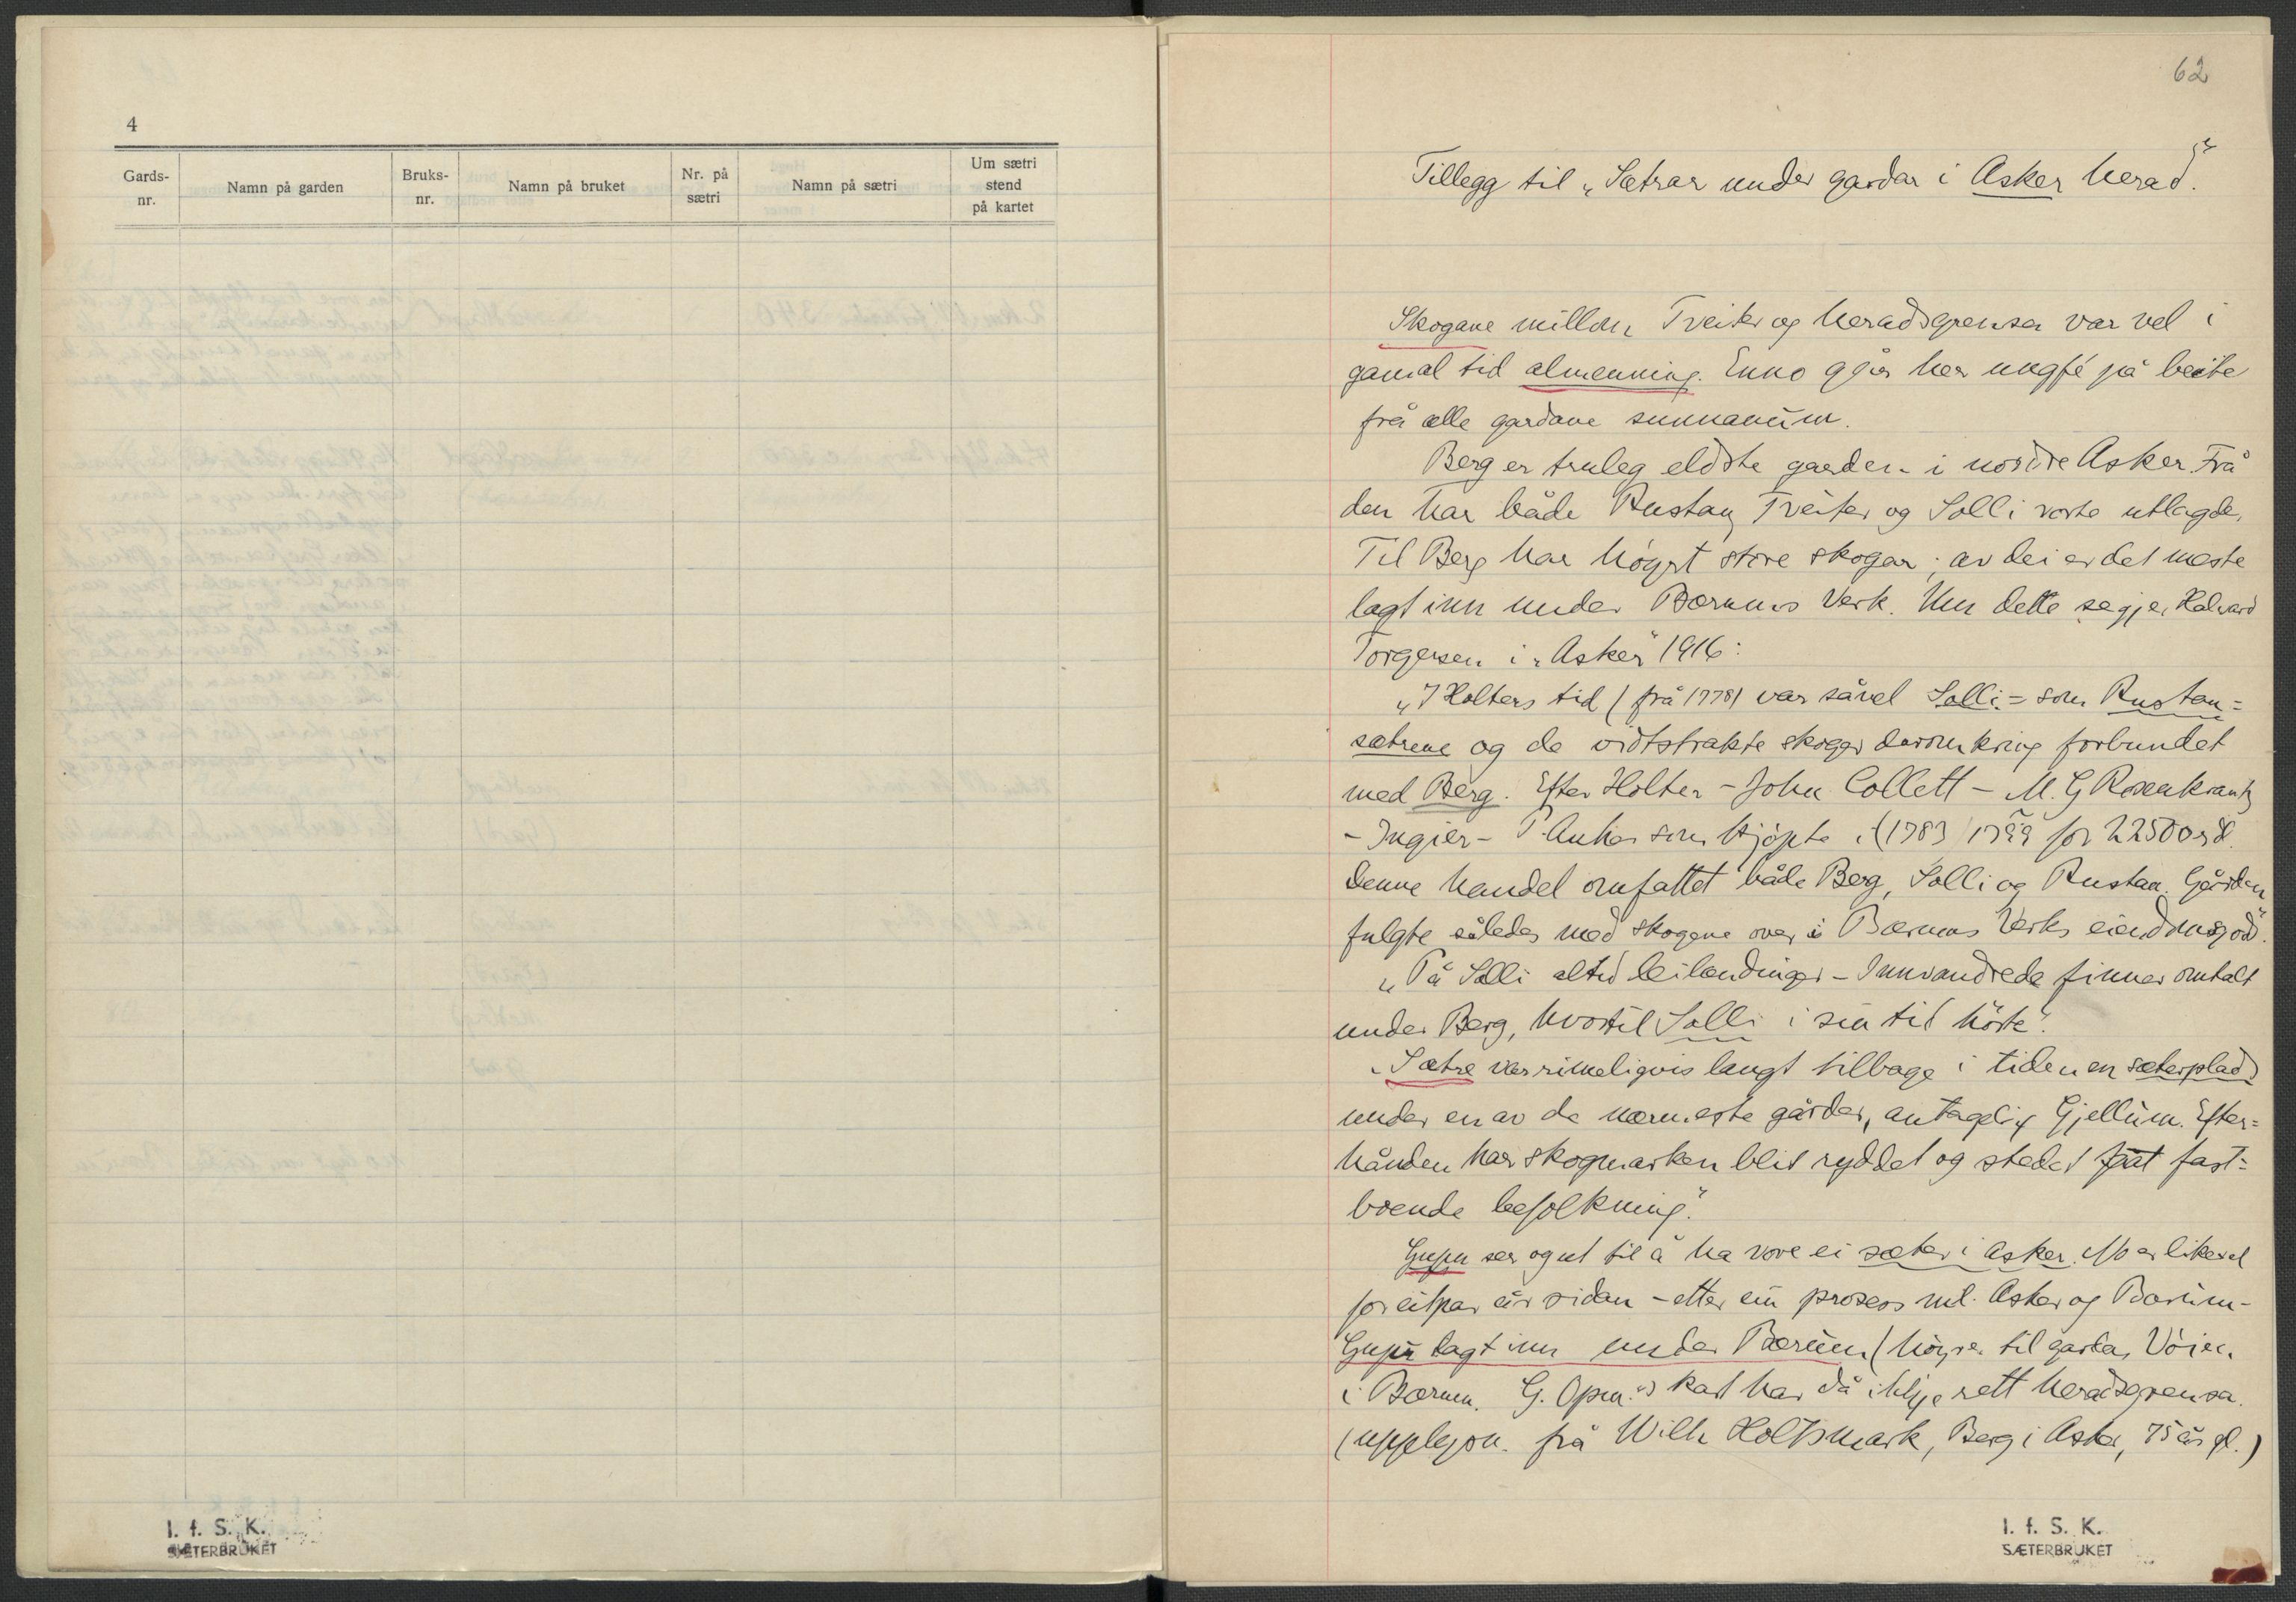 4
Gards-
nr.
Namn på garden
Bruks-
nr.
Namn på bruket
Nr. på
sætri
Namn på sætri
Um sætri
stend
på kartet
I. f. S. K.
SÆTERBRUKET
62
Tillegg til „Sætrar under gardar i Asker herad".
Skogane millom Tveiter og heradsgrensa var vel i
gamal tid almenning. Enno gjår her ungfé på beite
frå alle gardane sunnanum.
Berg er truleg eldste garden i nordre Asker. Frå
den har både Rustan, Tveiter og Solli vorte utlagde.
Til Berg har høyrt store skogar; av dei er det meste
lagt inn under Bærums Verk. Um dette segjer Halvard
Torgersen i „Asker" 1916:
„I Holters tid (frå 1778) var såvel Solli- som Rustan-
sætrene og de vidtstrakte skoger deromkring forbundet
med Berg. Efter Holter - John Collett - M. G Rosenkrantz
- Ingier - P. Anker som kjøpte (1783 for 22500 rd.
Denne handel omfattet både Berg, Solli og Rustan. Gården
fulgte således med skogene over i Bærums Verks eiendomsgods".
„På Solli altid leilendinger - Innvandrede finner omtalt
under Berg, hvortil Solli i sin tid hörte".
„Sætre var rimeligvis langt tilbage i tiden en sæterplads
under en av de nærmeste gårder, antagelig Gjellum. Efter-
hånden har skogmarken blit ryddet og stedet fåat fast-
boende befolkning".
Gupu ser og ut til å ha vore ei sæter i Asker. No er likevel
for eit par år sidan - etter ein prosess ml. Asker og Bærum -
Gupu lagt inn under Bærum (høyrer til garden Vöien
i Bærum. G. Opm.s kart har då ikkje rett heradsgrensa.
(upplysn. frå Wilh Holtsmark, Berg i Asker, 75 år gl.)
I. f. S. K.
SÆTERBRUKET